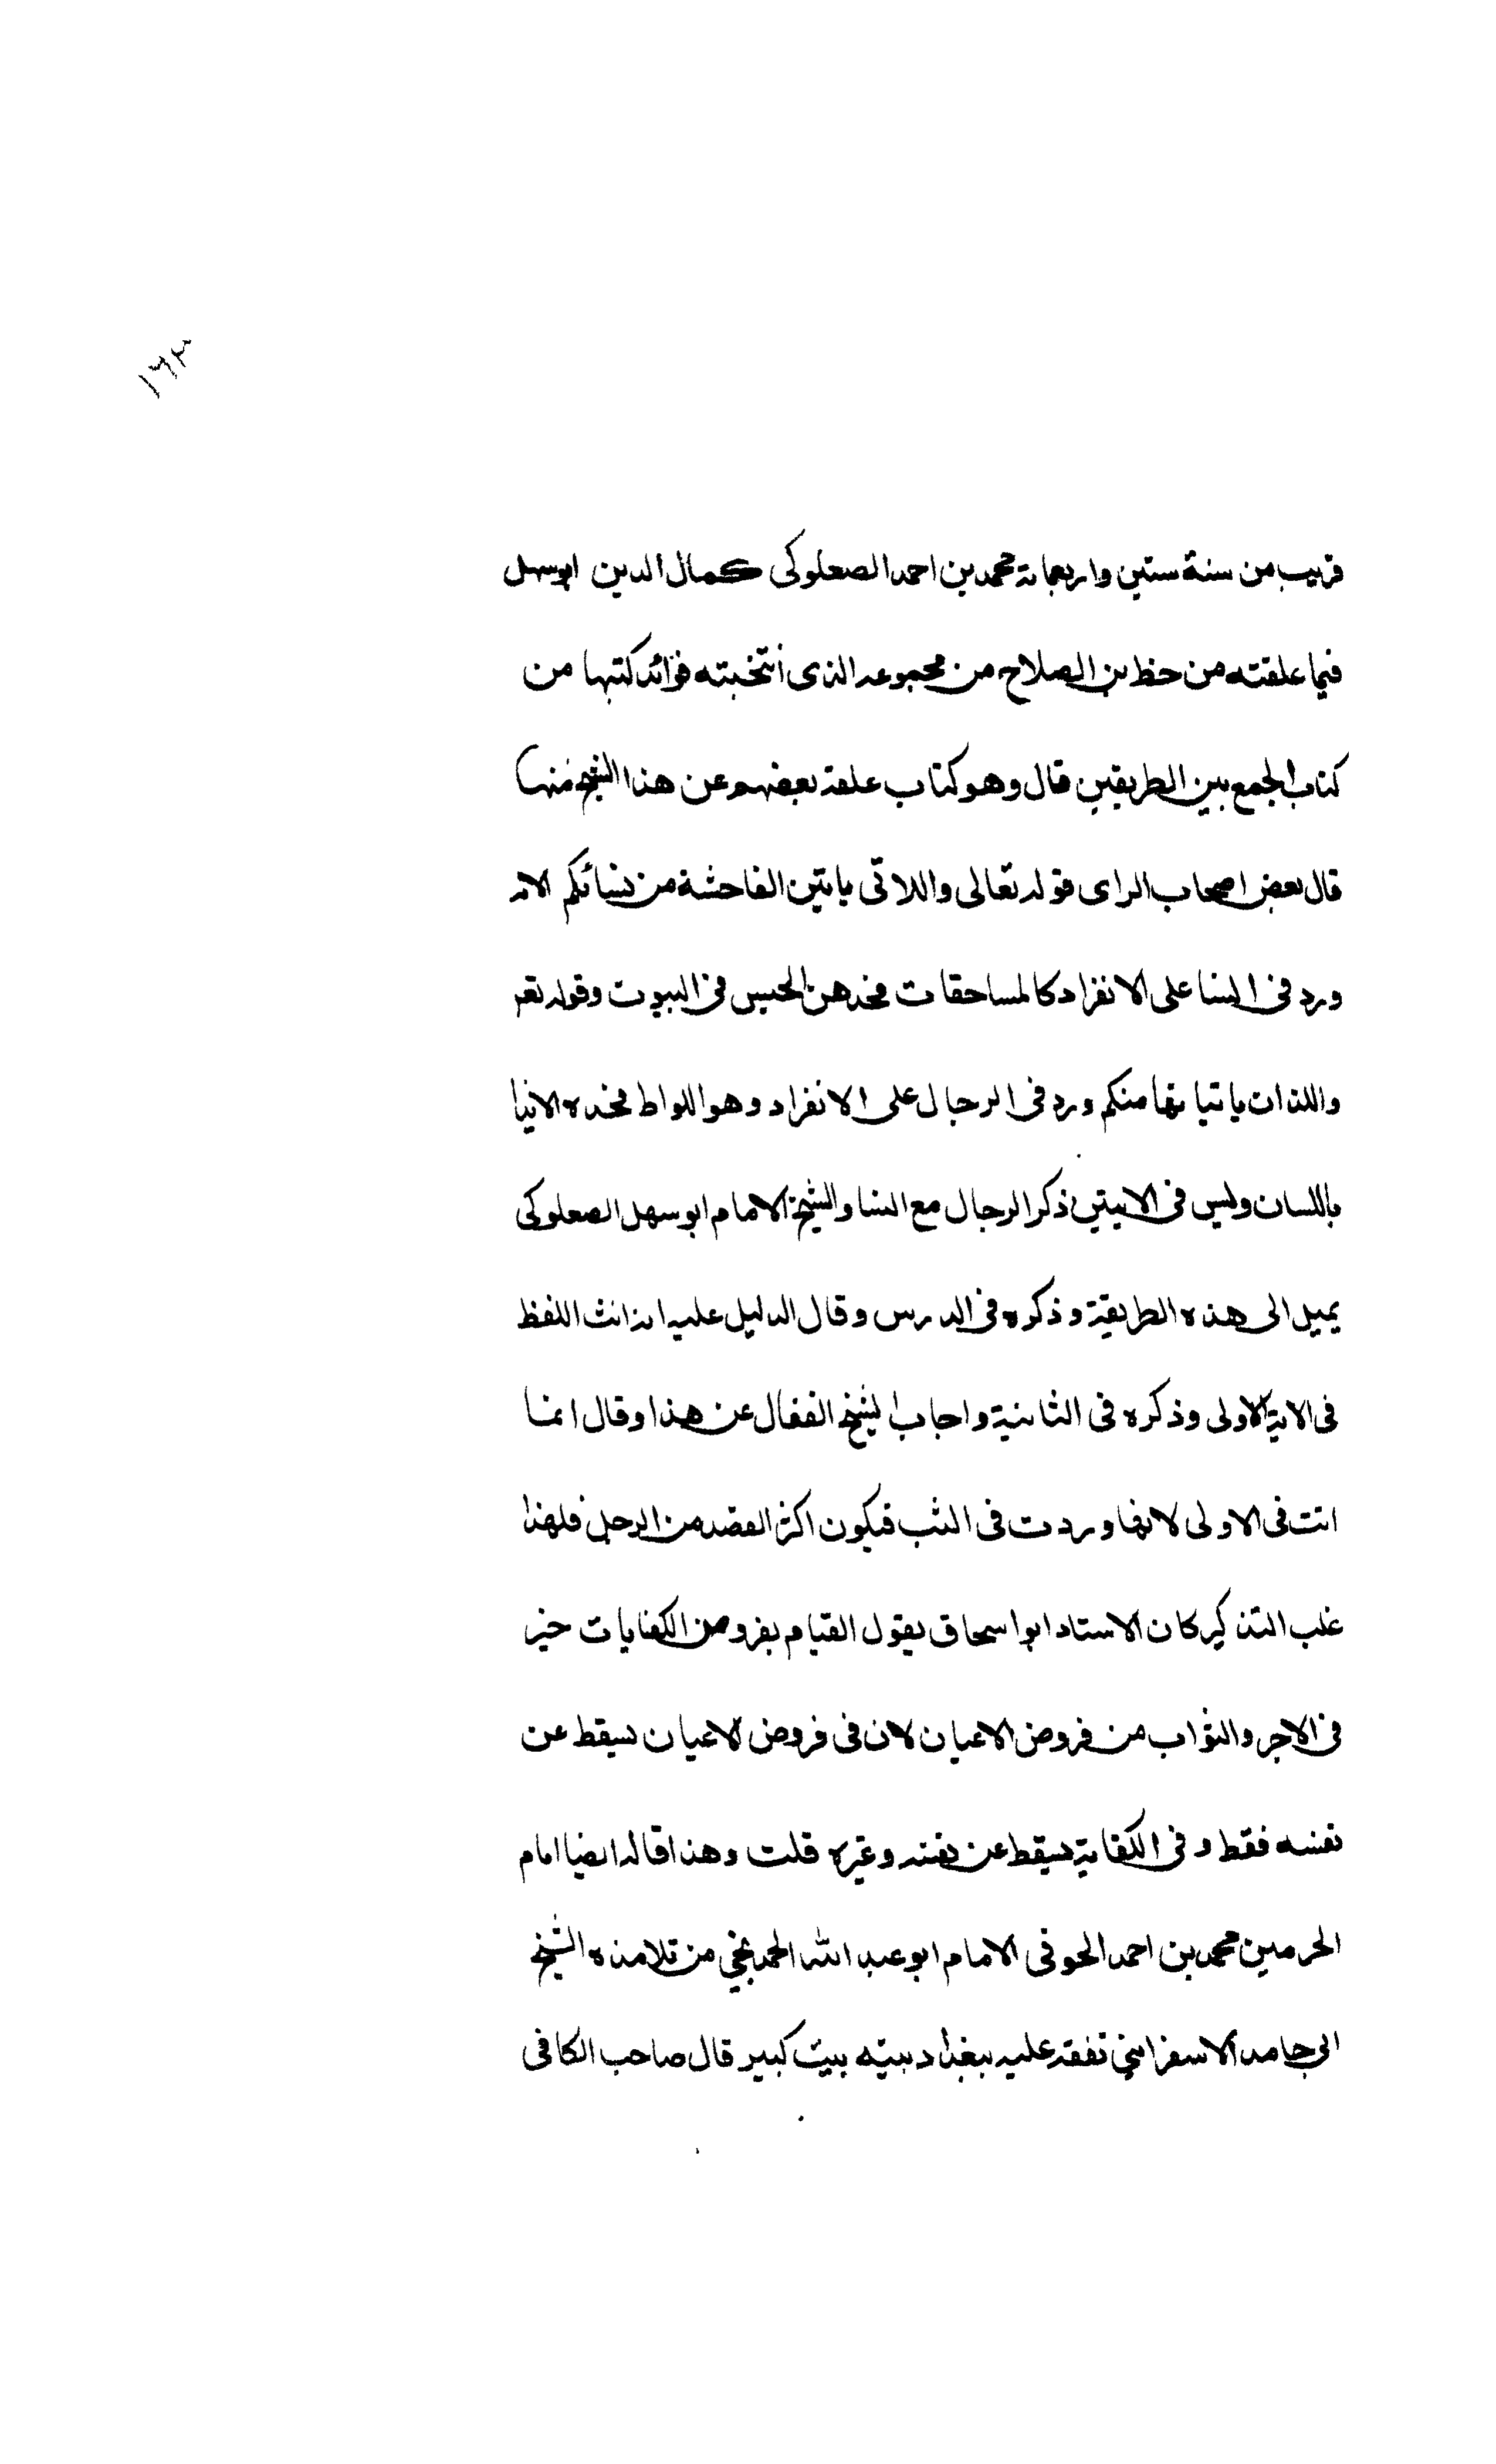 ١٦٣
قريب من سنة ستين واربعماية محمد بن احمد الصعلوكى كمال الدين ابو سهل
فيما علقته من خط بن الصلاح من مجموعه الذى انتخبته فوائد كتبها من
كتاب الجمع بين الطريقين قال وهو كتاب علقه بعضهم عن هذا الشيخ منها
قال بعض اصحاب الراى قوله تعالى واللاتى ياتين الفاحشة من نسائكم الاىه
ورد فى النسا على الانفراد كالمساحقات فحدهن الحبس فى البيوت وقوله تعر
واللذان ياتيانها منكم ورد فى الرجال على الانفراد وهو اللواط فحده الايذا
باللسان وليس فى الايتين ذكر الرجال مع النسا والشيخ الامام ابو سهل الصعلوكى
يميل الى هذه الطريقة وذكره فى الدرس وقال الدليل عليه انه انث اللفظ
فى الاية الاولى وذكره فى الثانية واجاب الشيخ القفال عن هذا وقال انما
انث فى الاولى لانها وردت فى الثيب فيكون اكثر القصد من الرجل فلهذا
غلب التذكير كان الاستاد ابو اسحاق يقول القيام بفروض الكفايات خير
فى الاجر والثواب من فروض الاعيان لان فى فروض الاعيان يسقط عن
نفسه فقط وفى الكفاية يسقط عن نفسه وغيره قلت وهذا قاله ايضا امام
الحرمين محمد بن احمد الحوفى الامام ابو عبد الله من تلامذه الشيخ
ابى حامد الاسفراينى تفقه عليه ببغداد بيته بيت كبير قال صاحب الكافى